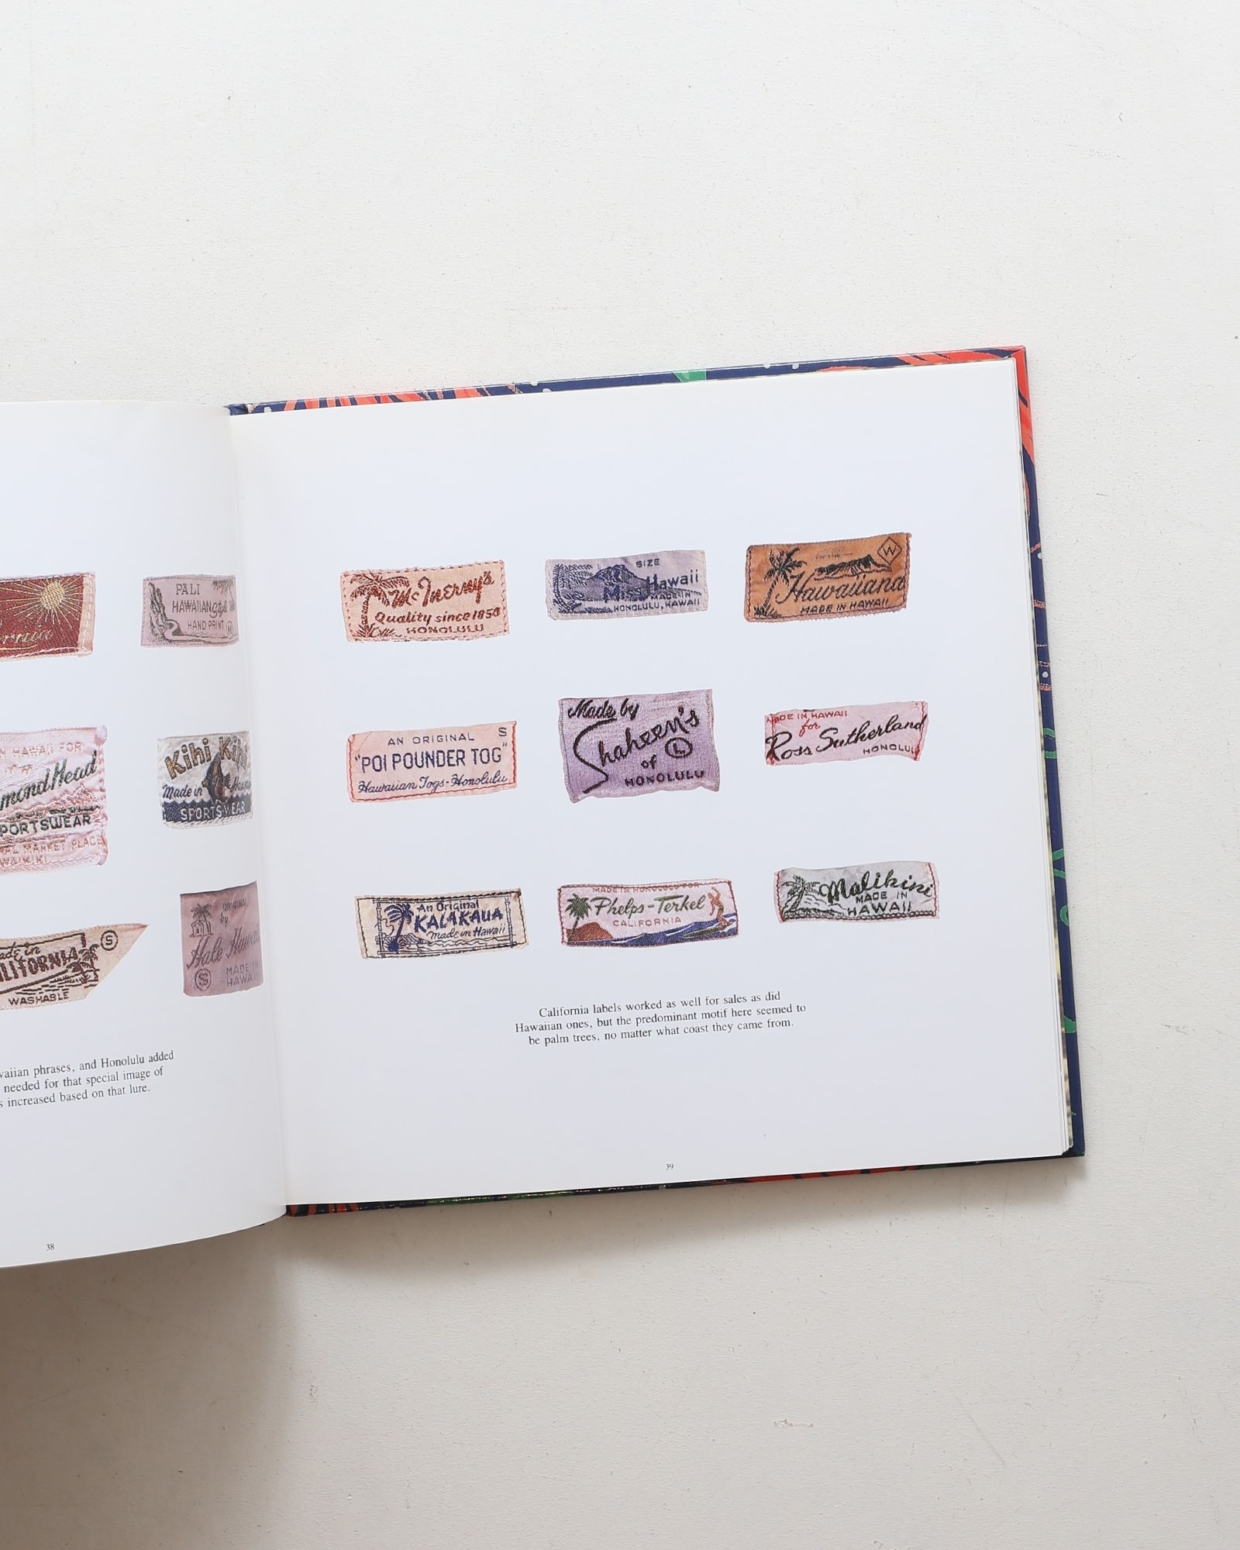 PALI
HAWAIIAN
HAND PRINT
IN HAWAII FOR
SPORTSWEAR
WAIKIKI
Kihi
Made in
SPORTSWEAR
Made in
CALIFORNIA
S
WASHABLE
original
by
Hale
MADE IN
S
waiian phrases, and Honolulu added
needed for that special image of
s increased based on that lure.
38
McInerny's
Quality since 1850
HONOLULU
SIZE
Miss Hawaii
MADE IN
HONOLULU, HAWAII
W
Hawaiiana
MADE IN HAWAII
AN ORIGINAL S
"POI POUNDER TOG"
Hawaiian Togs-Honolulu
Made by
Shaheen's
of L
HONOLULU
MADE IN HAWAII
for
Ross Sutherland
HONOLULU
An Original
KALAKAUA
made in Hawaii
MADE IN HONOLULU FOR
Phelps-Terkel
CALIFORNIA
Malihini
MADE IN
HAWAII
California labels worked as well for sales as did
Hawaiian ones, but the predominant motif here seemed to
be palm trees, no matter what coast they came from.
39